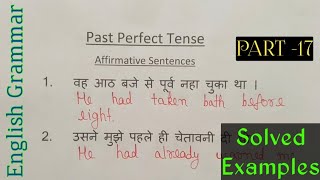 English Grammar
PART -17
Past Perfect Tense
Affirmative Sentences
1. वह आठ बजे से पूर्व नहा चुका था ।
He had taken bath before
eight.
2. उसने मुझे पहले ही चेतावनी दी
He had already warned me
Solved
Examples